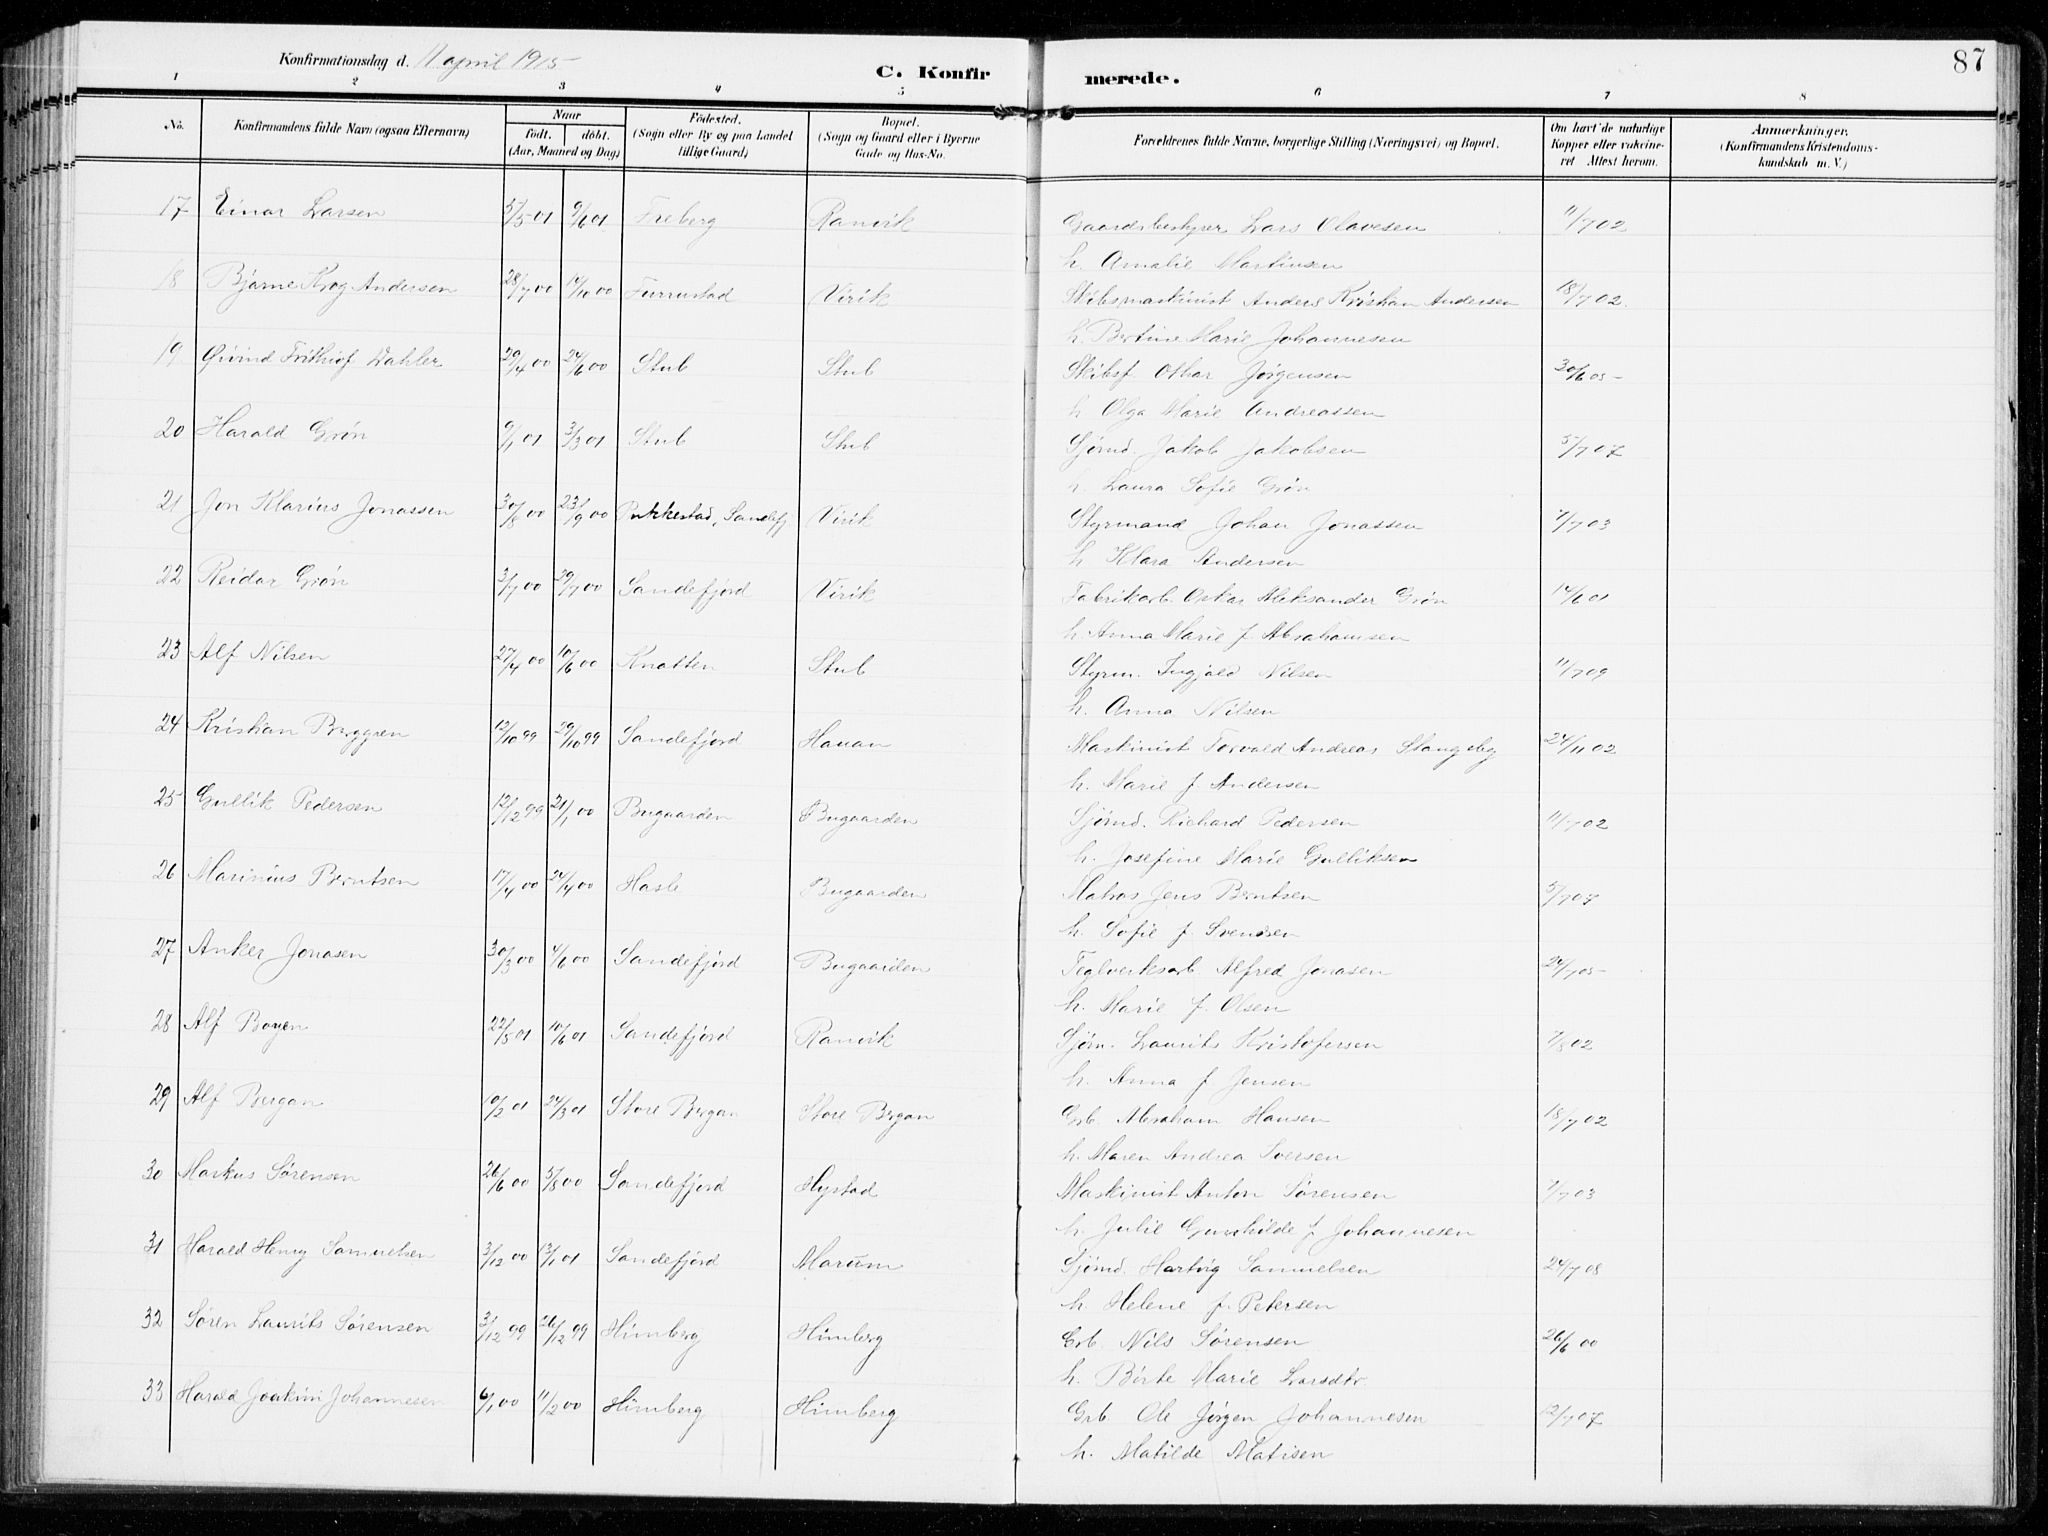 Konfirmationsdag d. 11 april 1915
C. Konfirmerede.
87
1 2 3 4 5 6 7 8
No. Konfirmandens fulde Navn (ogsaa Efternavn) Naar født. døbt. (Aar, Maaned og Dag) Fødested. (Sogn eller By og paa Landet tillige Gaard) Bopæl. (Sogn og Gaard eller i Byerne Gade og Hus-No. Forældrenes fulde Navne, borgerlige Stilling (Næringsvei) og Bopæl. Om havt de naturlige Kopper eller vakcineret Attest herom. Anmærkninger. (Konfirmandens Kristendomskundskab m. V.)
17 Einar Larsen 5/5 01 9/6 01 Freberg Ranvik Gaardsbestyrer Lars Olavesen 11/7 02
h. Amalie Martinsen
18 Bjarne Krog Andersen 28/7 00 14/10 00 Furustad Virik Skibsmaskinist Anders Kristian Andersen 18/7 02.
h. Bertine Marie Johannesen
19 Øivind Frithiof Dahler 29/4 00 24/6 00 Stub Stub Skibsf Othar Jørgensen 30/6 05
h Olga Marie Andreassen
20 Harald Grøn 9/1 01 3/3 01 Stub Stub Sjømd. Jakob Jakobsen 5/7 07
h. Laura Sofie Grøn
21 Jon Klarius Jonassen 30/8 00 23/9 00 Pukkestad, Sandefj Virik Styrmand Johan Jonassen 7/7 03
h Klara Andersen
22 Reidar Grøn 3/7 00 29/7 00 Sandefjord Virik Fabrikarb. Oskar Aleksander Grøn 14/6 01
h. Anna Marie f Abrahamsen
23 Alf Nilsen 27/4 00 10/6 00 Knatten Stub Styrm. Ingjald Nilsen 11/7 09
h. Anna Nilsen
24 Kristian Berggren 12/10 99 29/10 99 Sandefjord Hauan Maskinist Torvald Andreas Stangeby 24/11 02
h. Marie f Andersen
25 Gullik Pedersen 12/12 99 21/1 00 Bugaarden Bugaarden Sjømd. Richard Pedersen 11/7 02
h. Josefine Marie Gulliksen
26 Marinius Berntsen 17/4 00 24/4 00 Hasle Bugaarden Matros Jens Berntsen
h. Sofie f. Svendsen
27 Anker Jonasen 30/3 00 4/6 00 Sandefjord Bugaarden Teglverksarb Alfred Jonasen 24/7 05
h. Marie f. Olsen
28 Alf Boyen 22/5 01 10/6 01 Sandefjord Ranvik Sjøm. Laurits Kristofersen 7/8 02
h. Anna f Jensen
29 Alf Bergan 10/2 01 24/3 01 Store Bergan Store Bergan Grb. Abraham Hansen 18/7 02
h. Maren Andrea Iversen
30 Markus Sørensen 26/6 00 5/8 00 Sandefjord Hystad Maskinist Anton Sørensen 7/7 03
h. Julie Gunhilde f Johannesen
31 Harald Henry Samuelsen 3/12 00 13/1 01 Sandefjord Marum Sjømd. Hartvig Samuelsen 24/7 08
h. Helene f. Petersen
32 Søren Laurits Sørensen 3/12 99 26/12 99 Himberg Himberg Grb. Nils Sørensen 26/6 00
h. Børte Marie Larsdtr.
33 Harald Joakim Johannesen 6/1 00 11/2 00 Himberg Himberg Grb. Ole Jørgen Johannesen 12/7 07
h. Matilde Matisen